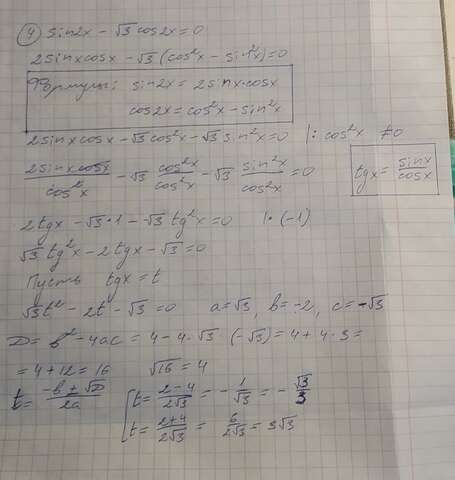 4) sin2x - √3 cos2x = 0
2sinxcosx - √3 (cos²x - sin²x) = 0
Формулы: sin2x = 2sinx·cosx
cos2x = cos²x - sin²x
2sinxcosx - √3 cos²x - √3 sin²x = 0 |: cos²x ≠ 0
2sinxcosx/cos²x - √3 cos²x/cos²x - √3 sin²x/cos²x = 0
tgx = sinx/cosx
2tgx - √3·1 - √3 tg²x = 0 |·(-1)
√3 tg²x - 2tgx - √3 = 0
Пусть tgx = t
√3t² - 2t - √3 = 0 a = √3, b = -2, c = -√3
D = b² - 4ac = 4 - 4·√3 (-√3) = 4 + 4·3 =
= 4 + 12 = 16 √16 = 4
t = -b ± √D/2a [t = 2-4/2√3 = -1/√3 = -√3/3
[t = 2+4/2√3 = 6/2√3 = 3√3